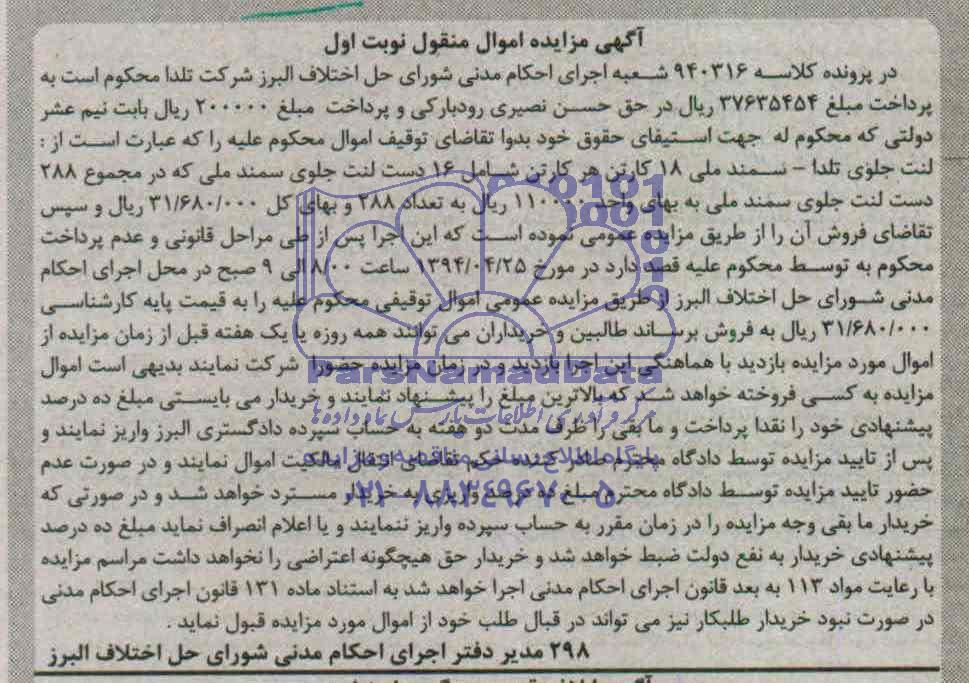 آگهی مزایده اموال منقول نوبت اول
در پرونده کلاسه ۹۴۰۳۱۶ شعبه اجرای احکام مدنی شورای حل اختلاف البرز شرکت تلدا محکوم است به
پرداخت مبلغ ۳۷۶۳۵۴۵۴ ریال در حق حسن نصیری رودبارکی و پرداخت مبلغ ۲۰۰۰۰۰ ریال بابت نیم عشر
دولتی که محکوم له جهت استیفای حقوق خود بدوا تقاضای توقیف اموال محکوم علیه را که عبارت است از :
لنت جلوی تلدا – سمند ملی ۱۸ کارتن هر کارتن شامل ۱۶ دست لنت جلوی سمند ملی که در مجموع ۲۸۸
دست لنت جلوی سمند ملی به بهای واحد ۱۱۰۰۰۰ ریال به تعداد ۲۸۸ و بهای کل ۳۱/۶۸۰/۰۰۰ ریال و سپس
تقاضای فروش آن را از طریق مزایده عمومی نموده است که این اجرا پس از طی مراحل قانونی و عدم پرداخت
محکوم به توسط محکوم علیه قصد دارد در مورخ ۱۳۹۴/۰۴/۲۵ ساعت ۸/۰۰ الی ۹ صبح در محل اجرای احکام
مدنی شورای حل اختلاف البرز از طریق مزایده عمومی اموال توقیفی محکوم علیه را به قیمت پایه کارشناسی
۳۱/۶۸۰/۰۰۰ ریال به فروش برساند طالبین و خریداران می توانند همه روزه یا یک هفته قبل از زمان مزایده از
اموال مورد مزایده بازدید با هماهنگی این اجرا بازدید و در زمان مزایده حضورا شرکت نمایند بدیهی است اموال
مزایده به کسی فروخته خواهد شد که بالاترین مبلغ را پیشنهاد نمایند و خریدار می بایستی مبلغ ده درصد
پیشنهادی خود را نقدا پرداخت و ما بقی را ظرف مدت دو هفته به حساب سپرده دادگستری البرز واریز نمایند و
پس از تایید مزایده توسط دادگاه محترم صادر کننده حکم تقاضای انتقال مالکیت اموال نمایند و در صورت عدم
حضور تایید مزایده توسط دادگاه محترم مبلغ ده درصد واریزی به خریدار مسترد خواهد شد و در صورتی که
خریدار ما بقی وجه مزایده را در زمان مقرر به حساب سپرده واریز ننمایند و یا اعلام انصراف نماید مبلغ ده درصد
پیشنهادی خریدار به نفع دولت ضبط خواهد شد و خریدار حق هیچگونه اعتراضی را نخواهد داشت مراسم مزایده
با رعایت مواد ۱۱۳ به بعد قانون اجرای احکام مدنی اجرا خواهد شد به استناد ماده ۱۳۱ قانون اجرای احکام مدنی
در صورت نبود خریدار طلبکار نیز می تواند در قبال طلب خود از اموال مورد مزایده قبول نماید .
۲۹۸ مدیر دفتر اجرای احکام مدنی شورای حل اختلاف البرز
ParsNamadData
پایگاه اطلاع رسانی مناقصه و مزایده
۰۲۱-۸۸۳۴۹۶۷۰-۵